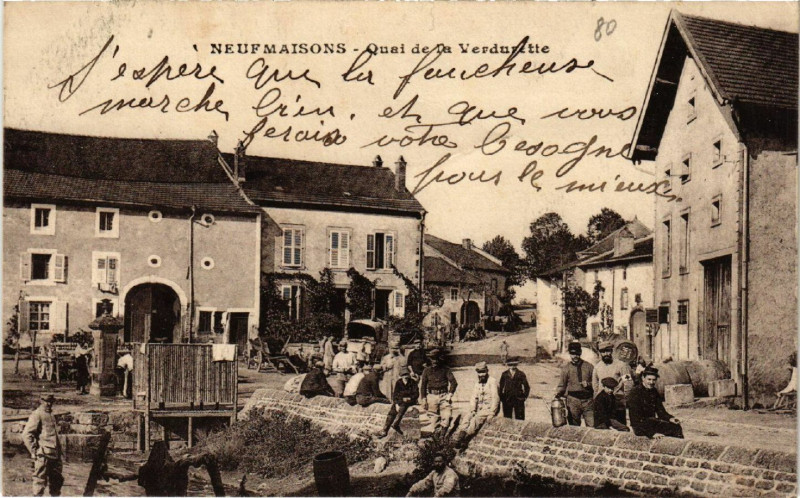 80
NEUFMAISONS - Quai de la Verdurette
J'espère que la faucheuse
marche bien. et que vous
ferais votre besogne
pous le mieux.